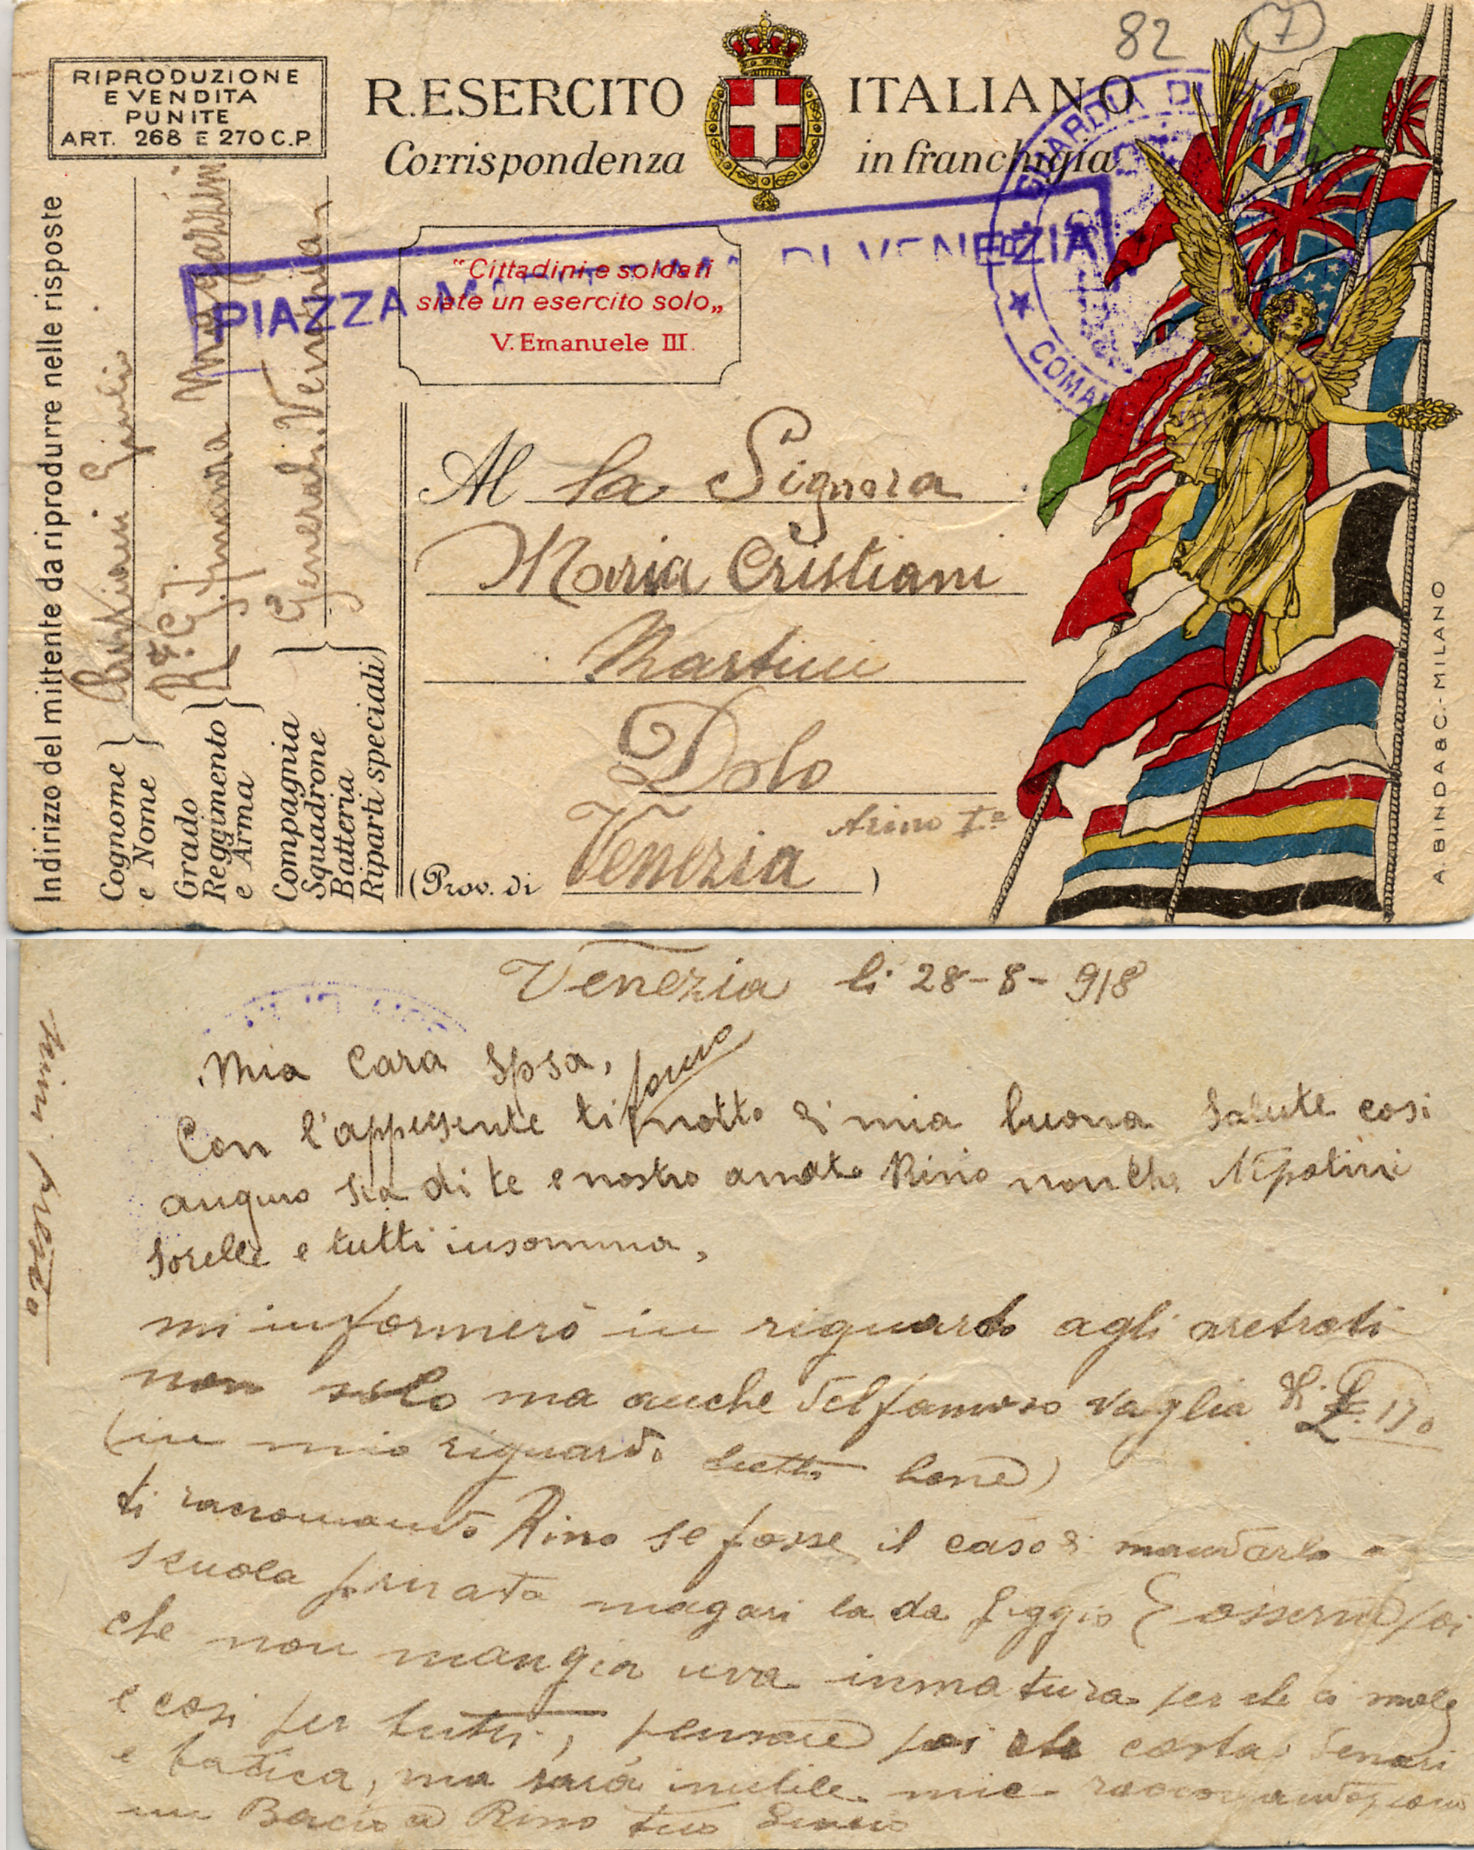 82 7
RIPRODUZIONE
E VENDITA
PUNITE
ART. 268 E 270 C.P.
R. ESERCITO ITALIANO
Corrispondenza in franchigia
"Cittadini e soldati
siate un esercito solo„
V. Emanuele III.
PIAZZA DI VENEZIA
GUARDIA DI
COMAN
Indirizzo del mittente da riprodurre nelle risposte
Cognome
e Nome
Cristiani Giulio
Grado
Reggimento
e Arma
R.
Compagnia
Squadrone
Batteria
Riparti speciali
General. Venezia
Al la Signora
Maria Cristiani
Martini
Dolo
Arino
(Prov. di Venezia)
A. BINDA & C. - MILANO
Venezia li 28-8-918
Mia Cara Spsa,
Con l'appresente ti noto di mia buona Salute cosi
auguro sia di te e nostro amato Rino nonche Nipotini
Sorelle e tutti insomma,
mi informerò in riguardo agli aretrati
non solo ma anche del famoso vaglia di £. 170
(in mio riguardo tutto bene)
ti racomando Rino se fosse il caso di mandarlo a
scuola privata magari la da Giggio E osserva poi
che non mangia uva inmatura per che ci male
e cosi per tutti, pensare poi che costa denari
e fatica, ma sarà inutile mie
un Bacio a Rino tuo Giulio
scrivi presto